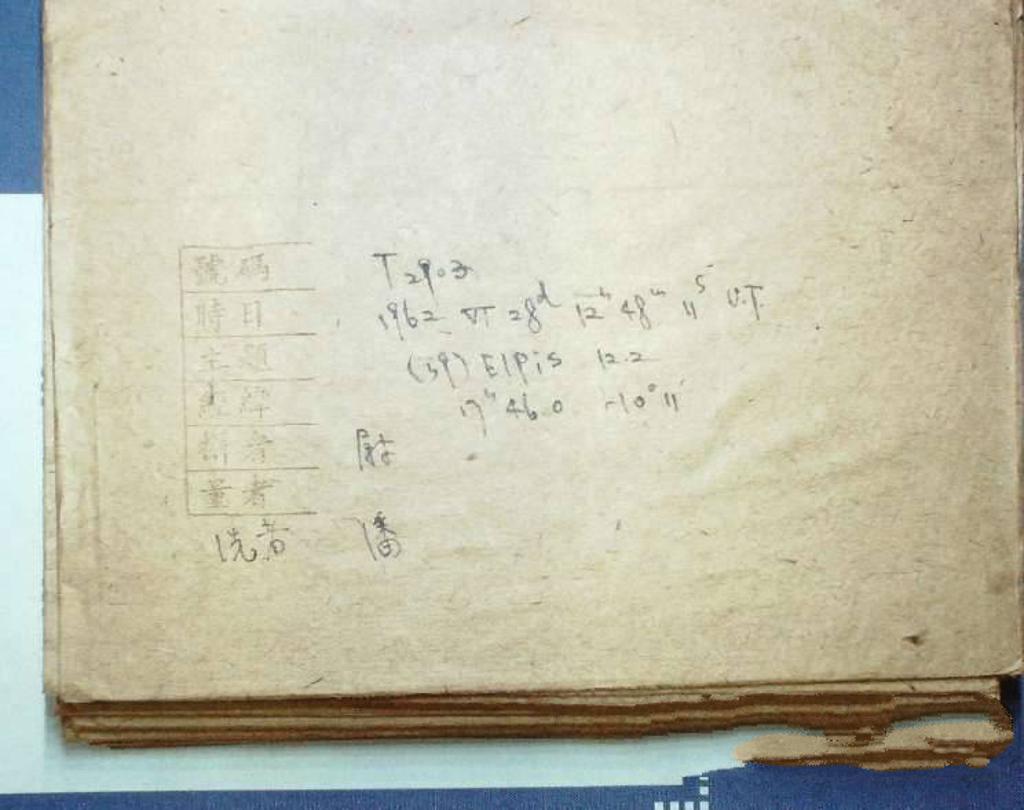 號碼 T2903
時日 1962 VI 28d 12h 48m 11s U.T.
主題 (59) Elpis 12.2
經緯 17h 46.0 -10° 11'
攝者
量者
洗者 潘